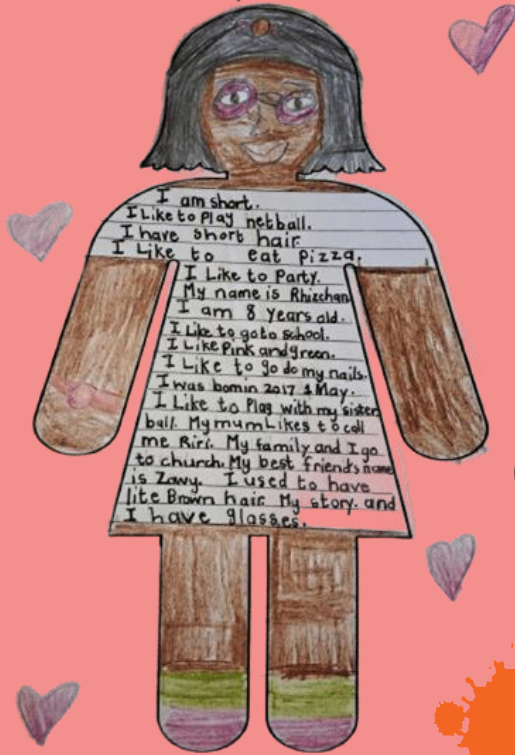 I am short.
I Like to Play netball.
I have short hair.
I Like to eat Pizza.
I Like to Party.
My name is Rhizchan
I am 8 years old.
I Like to go to school.
I Like Pink and green.
I Like to go do my nails.
I was born in 2017 1 May.
I Like to Play with my sister
ball. My mum Likes to call
me Riri. My family and I go
to church. My best friends name
is Zawy. I used to have
lite Brown hair. My story. and
I have glasses.